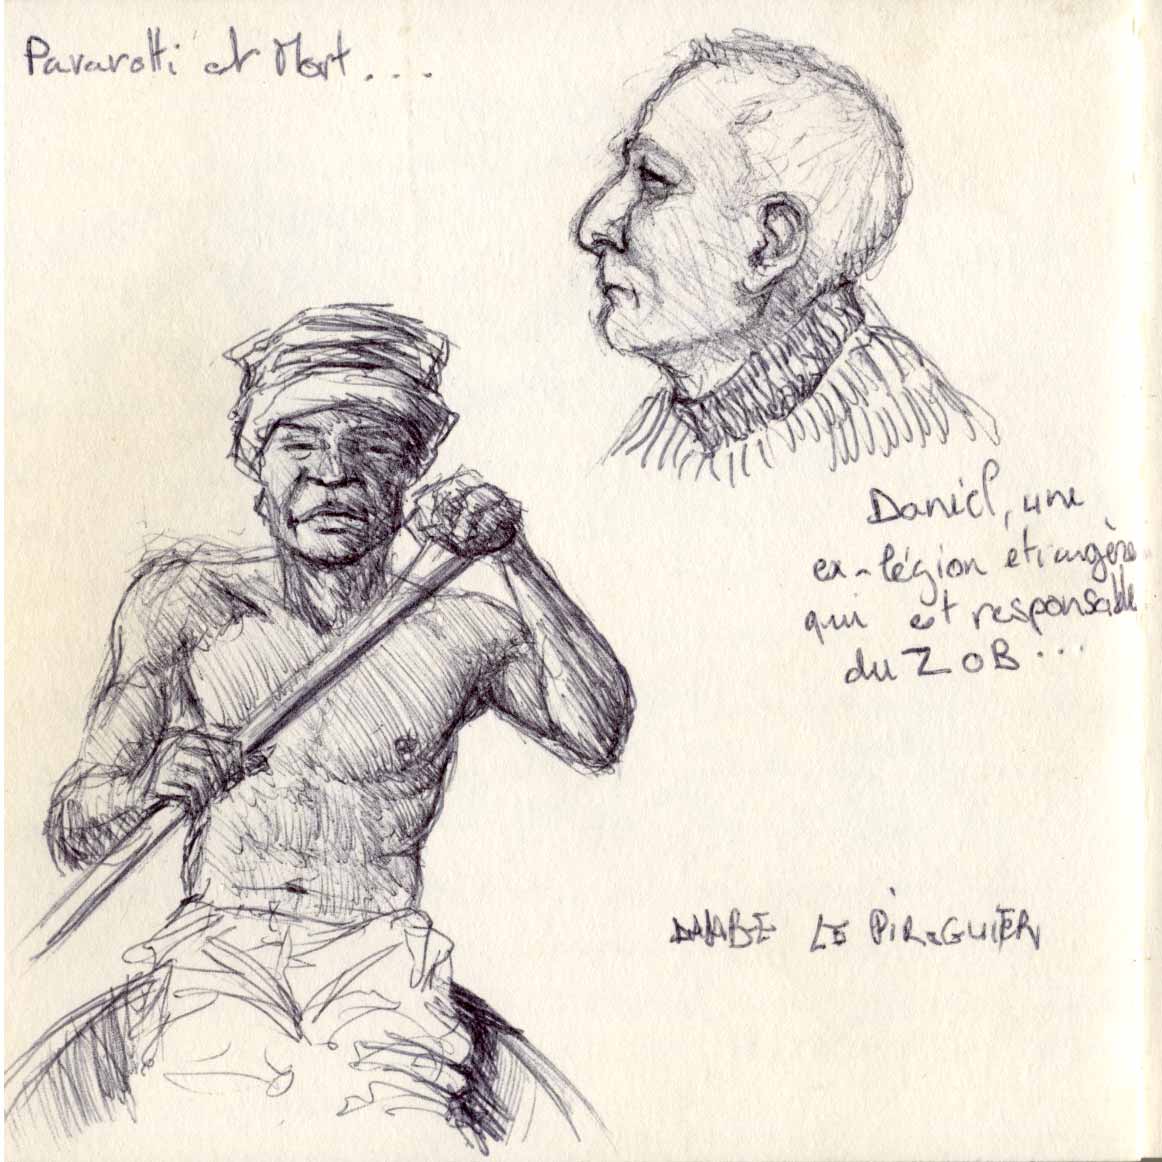 Pavarotti est Mort....
Daniel, une
ex-légion étrangère
qui est responsable
du ZOB...
LE PIROGUIER